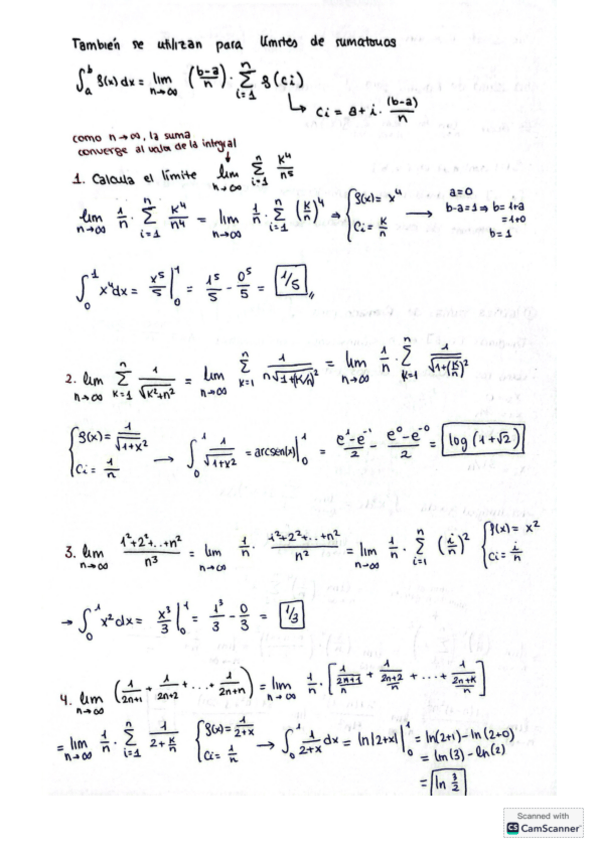 También se utilizan para límites de sumatorios
∫_a^b f(x) dx = lim_{n→∞} ((b-a)/n) · Σ_{i=1}^n f(ci)
↳ ci = a + i · (b-a)/n
como n→∞, la suma
converge al valor de la integral
1. Calcula el límite lim_{n→∞} Σ_{i=1}^n k⁴/n⁵
lim_{n→∞} 1/n · Σ_{i=1}^n k⁴/n⁴ = lim_{n→∞} 1/n · Σ_{i=1}^n (k/n)⁴ ⇒ { f(x) = x⁴ ; ci = k/n → a=0
b-a=1 ⇒ b=1+a
=1+0
b=1
∫_0^1 x⁴dx = x⁵/5 |_0^1 = 1⁵/5 - 0⁵/5 = 1/5 ,,
2. lim_{n→∞} Σ_{k=1}^n 1/√(k²+n²) = lim_{n→∞} Σ_{k=1}^n 1/(n√(1+(k/n)²)) = lim_{n→∞} 1/n · Σ_{k=1}^n 1/√(1+(k/n)²)
{ f(x) = 1/√(1+x²) ; ci = 1/n → ∫_0^1 1/√(1+x²) = arcsen(x) |_0^1 = (e¹-e⁻¹)/2 - (e⁰-e⁻⁰)/2 = log(1+√2)
3. lim_{n→∞} (1²+2²+..+n²)/n³ = lim_{n→∞} 1/n · (1²+2²+..+n²)/n² = lim_{n→∞} 1/n · Σ_{i=1}^n (i/n)² { f(x) = x² ; ci = i/n
→ ∫_0^1 x²dx = x³/3 |_0^1 = 1³/3 - 0/3 = 1/3
4. lim_{n→∞} (1/(2n+1) + 1/(2n+2) + ... + 1/(2n+n)) = lim_{n→∞} 1/n · [1/((2n+1)/n) + 1/((2n+2)/n) + ... + 1/((2n+k)/n)]
= lim_{n→∞} 1/n · Σ_{i=1}^n 1/(2+k/n) { f(x) = 1/(2+x) ; ci = 1/n → ∫_0^1 1/(2+x) dx = ln|2+x| |_0^1 = ln(2+1) - ln(2+0)
= ln(3) - ln(2)
= ln 3/2
Scanned with
CS CamScanner